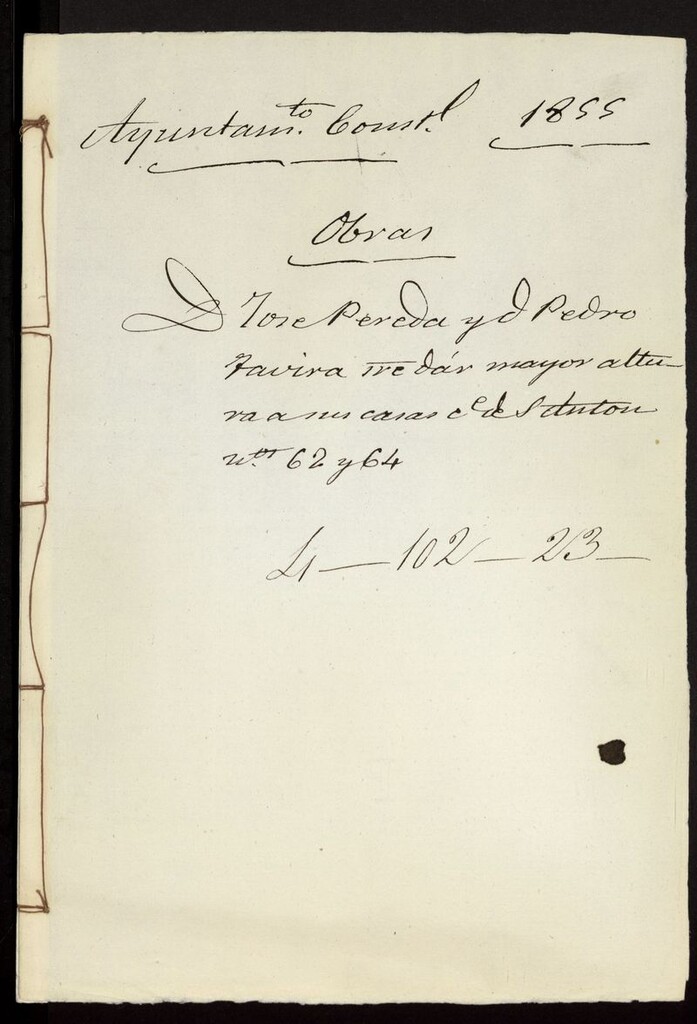 Ayuntam.to Const.l 1855
Obras
D Jose Pereda y d Pedro
Tavira sre dár mayor altu-
ra a sus casas c.e de S Anton
n.os 62 y 64
4 — 102 — 23 —